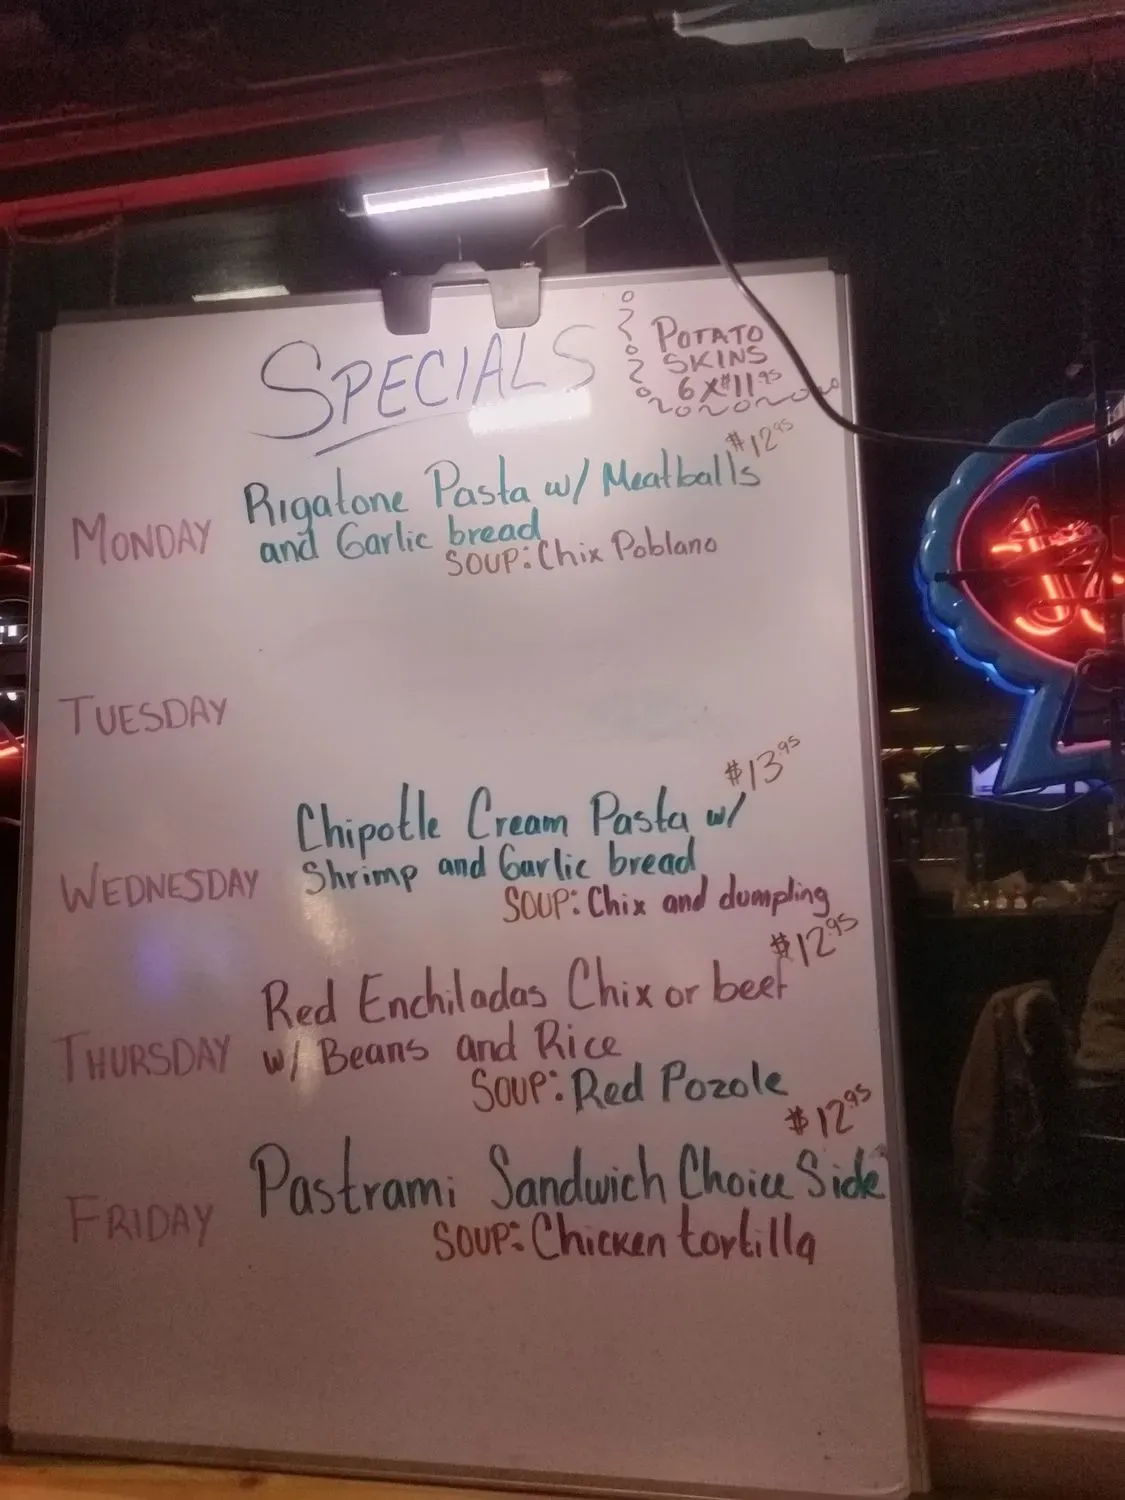 SPECIALS
POTATO
SKINS
6 X $11.95
$12.95
MONDAY
Rigatone Pasta w/ Meatballs
and Garlic bread
SOUP: Chix Poblano
TUESDAY
$13.95
WEDNESDAY
Chipotle Cream Pasta w/
Shrimp and Garlic bread
SOUP: Chix and dumpling
$12.95
THURSDAY
Red Enchiladas Chix or beef
w/ Beans and Rice
SOUP: Red Pozole
$12.95
FRIDAY
Pastrami Sandwich Choice Side
SOUP: Chicken tortilla